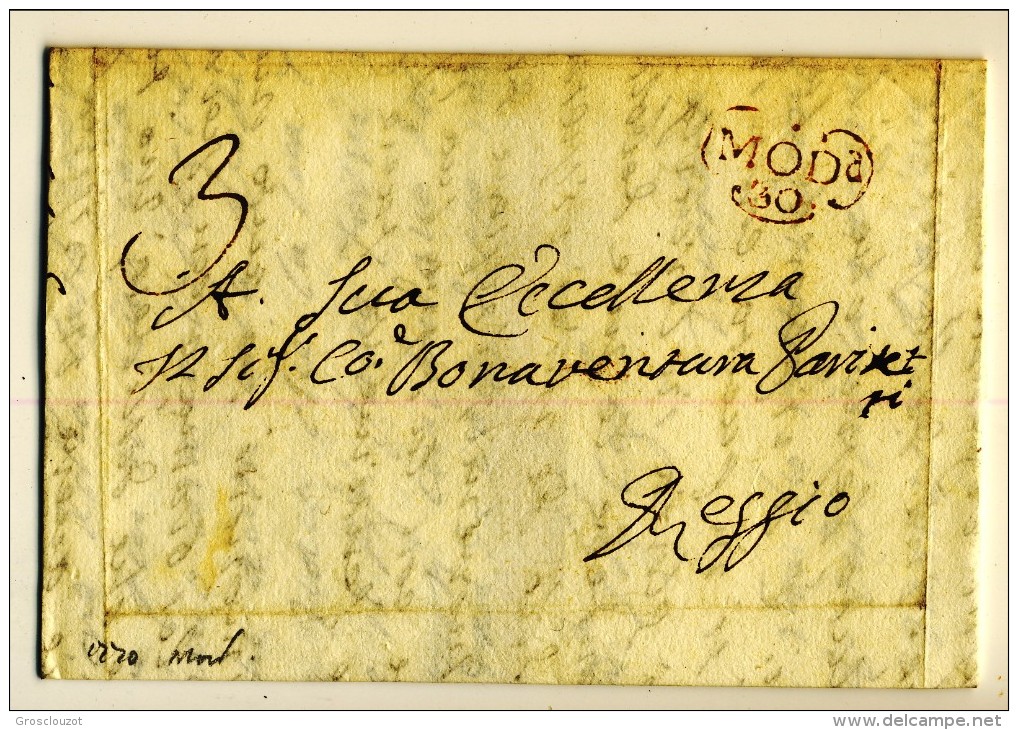 3
MODa
30
A. Sua Eccellenza
Il Sig.r Co.e Bonaventura Pariset
ti
Reggio
1770
Grosclouzot
delcampe.net